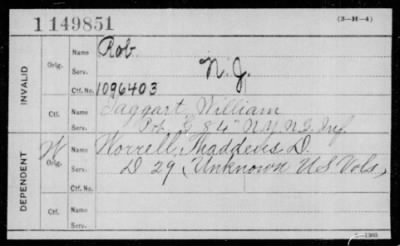 1 149851
(3—H—4)
INVALID
Orig.
Name Rob.
Serv. N.J.
Ctf. No. 1096403
Ctf.
Name Taggart, William
Serv. 84" N.Y.N.G. Inf.
DEPENDENT
W
Orig.
Name Worrell, Thaddeus D.
Serv. D 29, Unknown U.S. Vols,
Ctf. No.
Ctf.
Name
Serv.